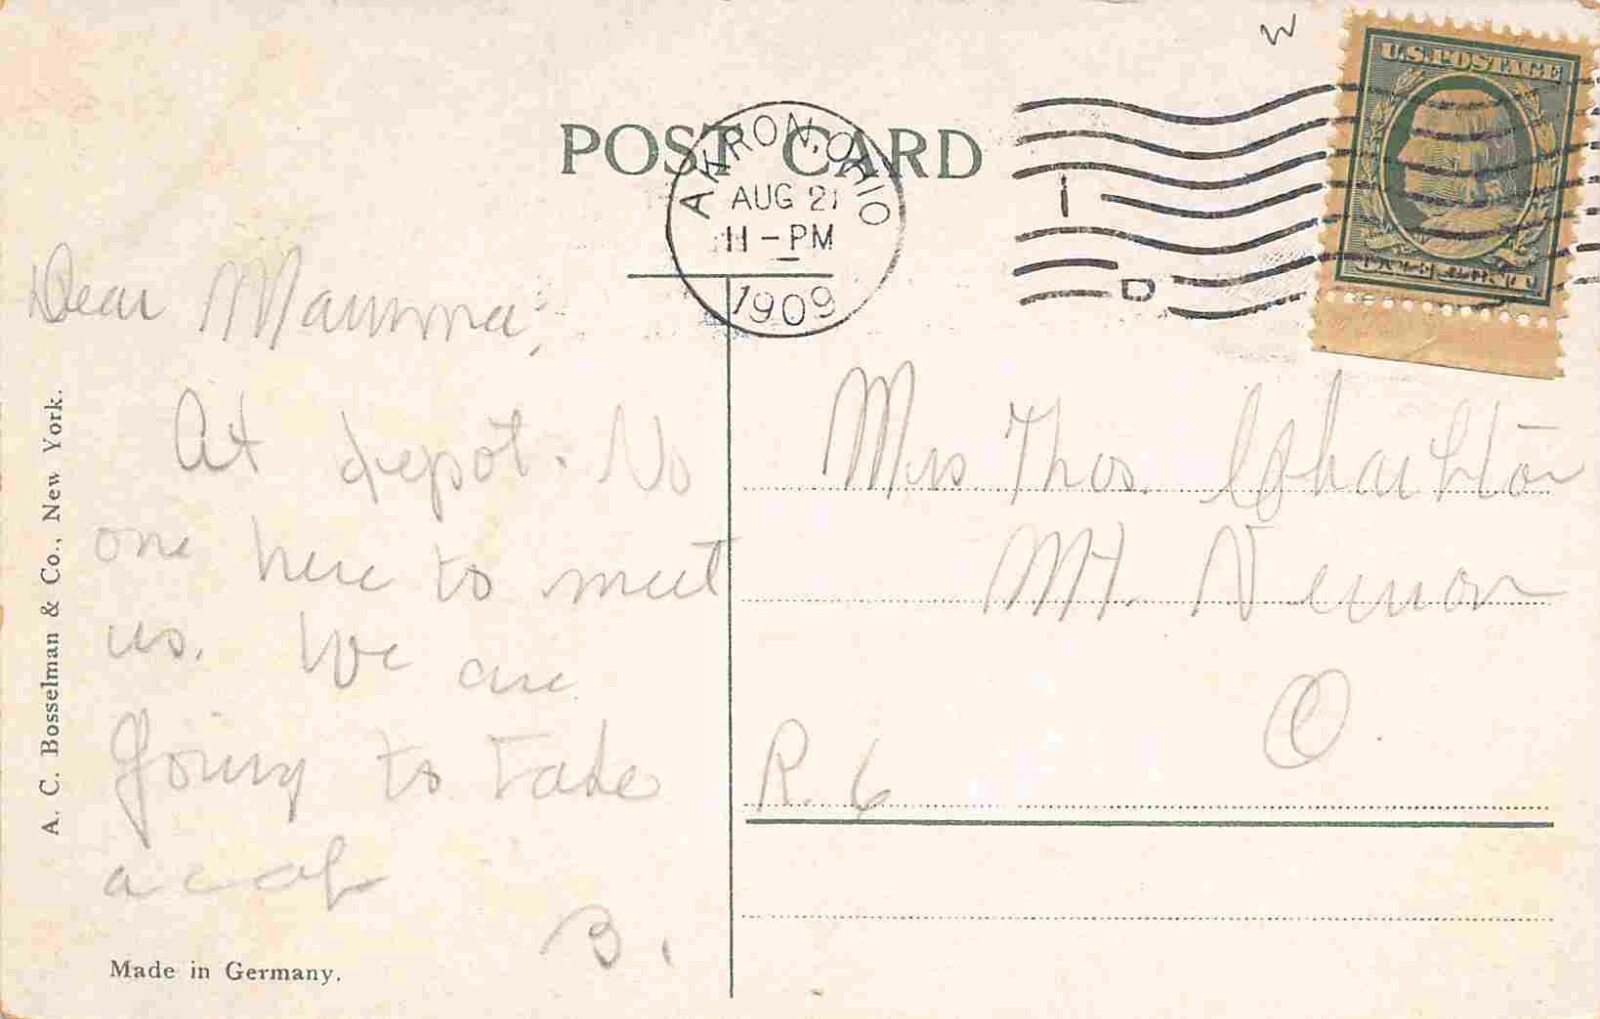 W
U.S. POSTAGE
POST CARD
AKRON, OHIO
AUG 21
11 - PM
1909
1
D
Dear Mamma,
At depot. No
one here to meet
us. We are
going to take
a cab
B.
Mrs Thos.
Mt. Vernon
O.
R. 6
A. C. Bosselman & Co., New York.
Made in Germany.